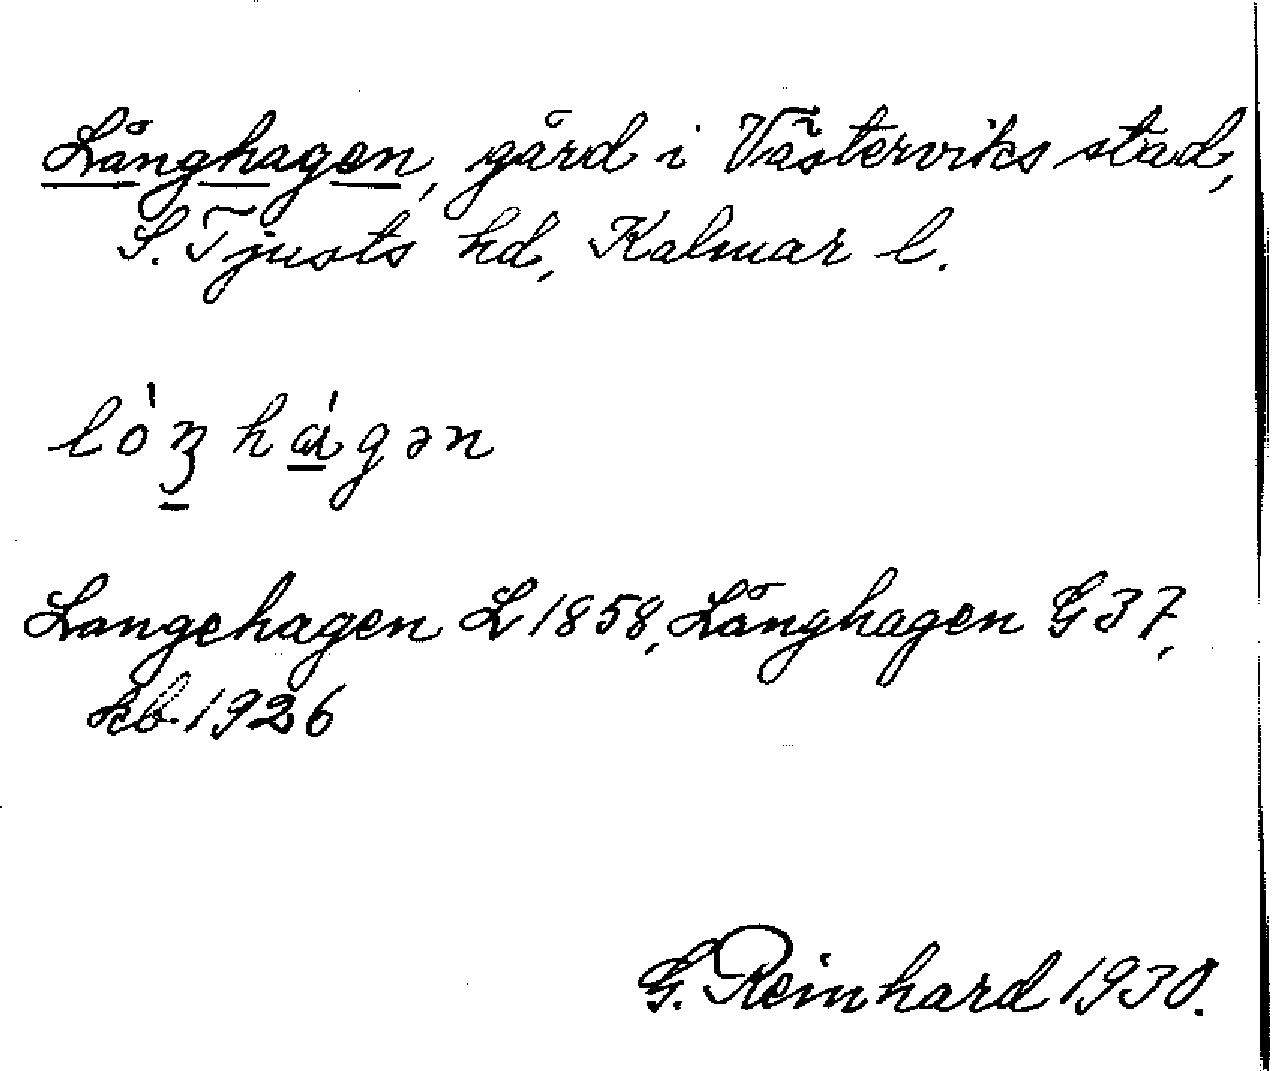 Långhagen, gård i Västerviks stad,
S. Tjusts hd, Kalmar l.
lòŋhágən
Langehagen L 1858, Långhagen G 37,
kb. 1926
G. Reinhard 1930.